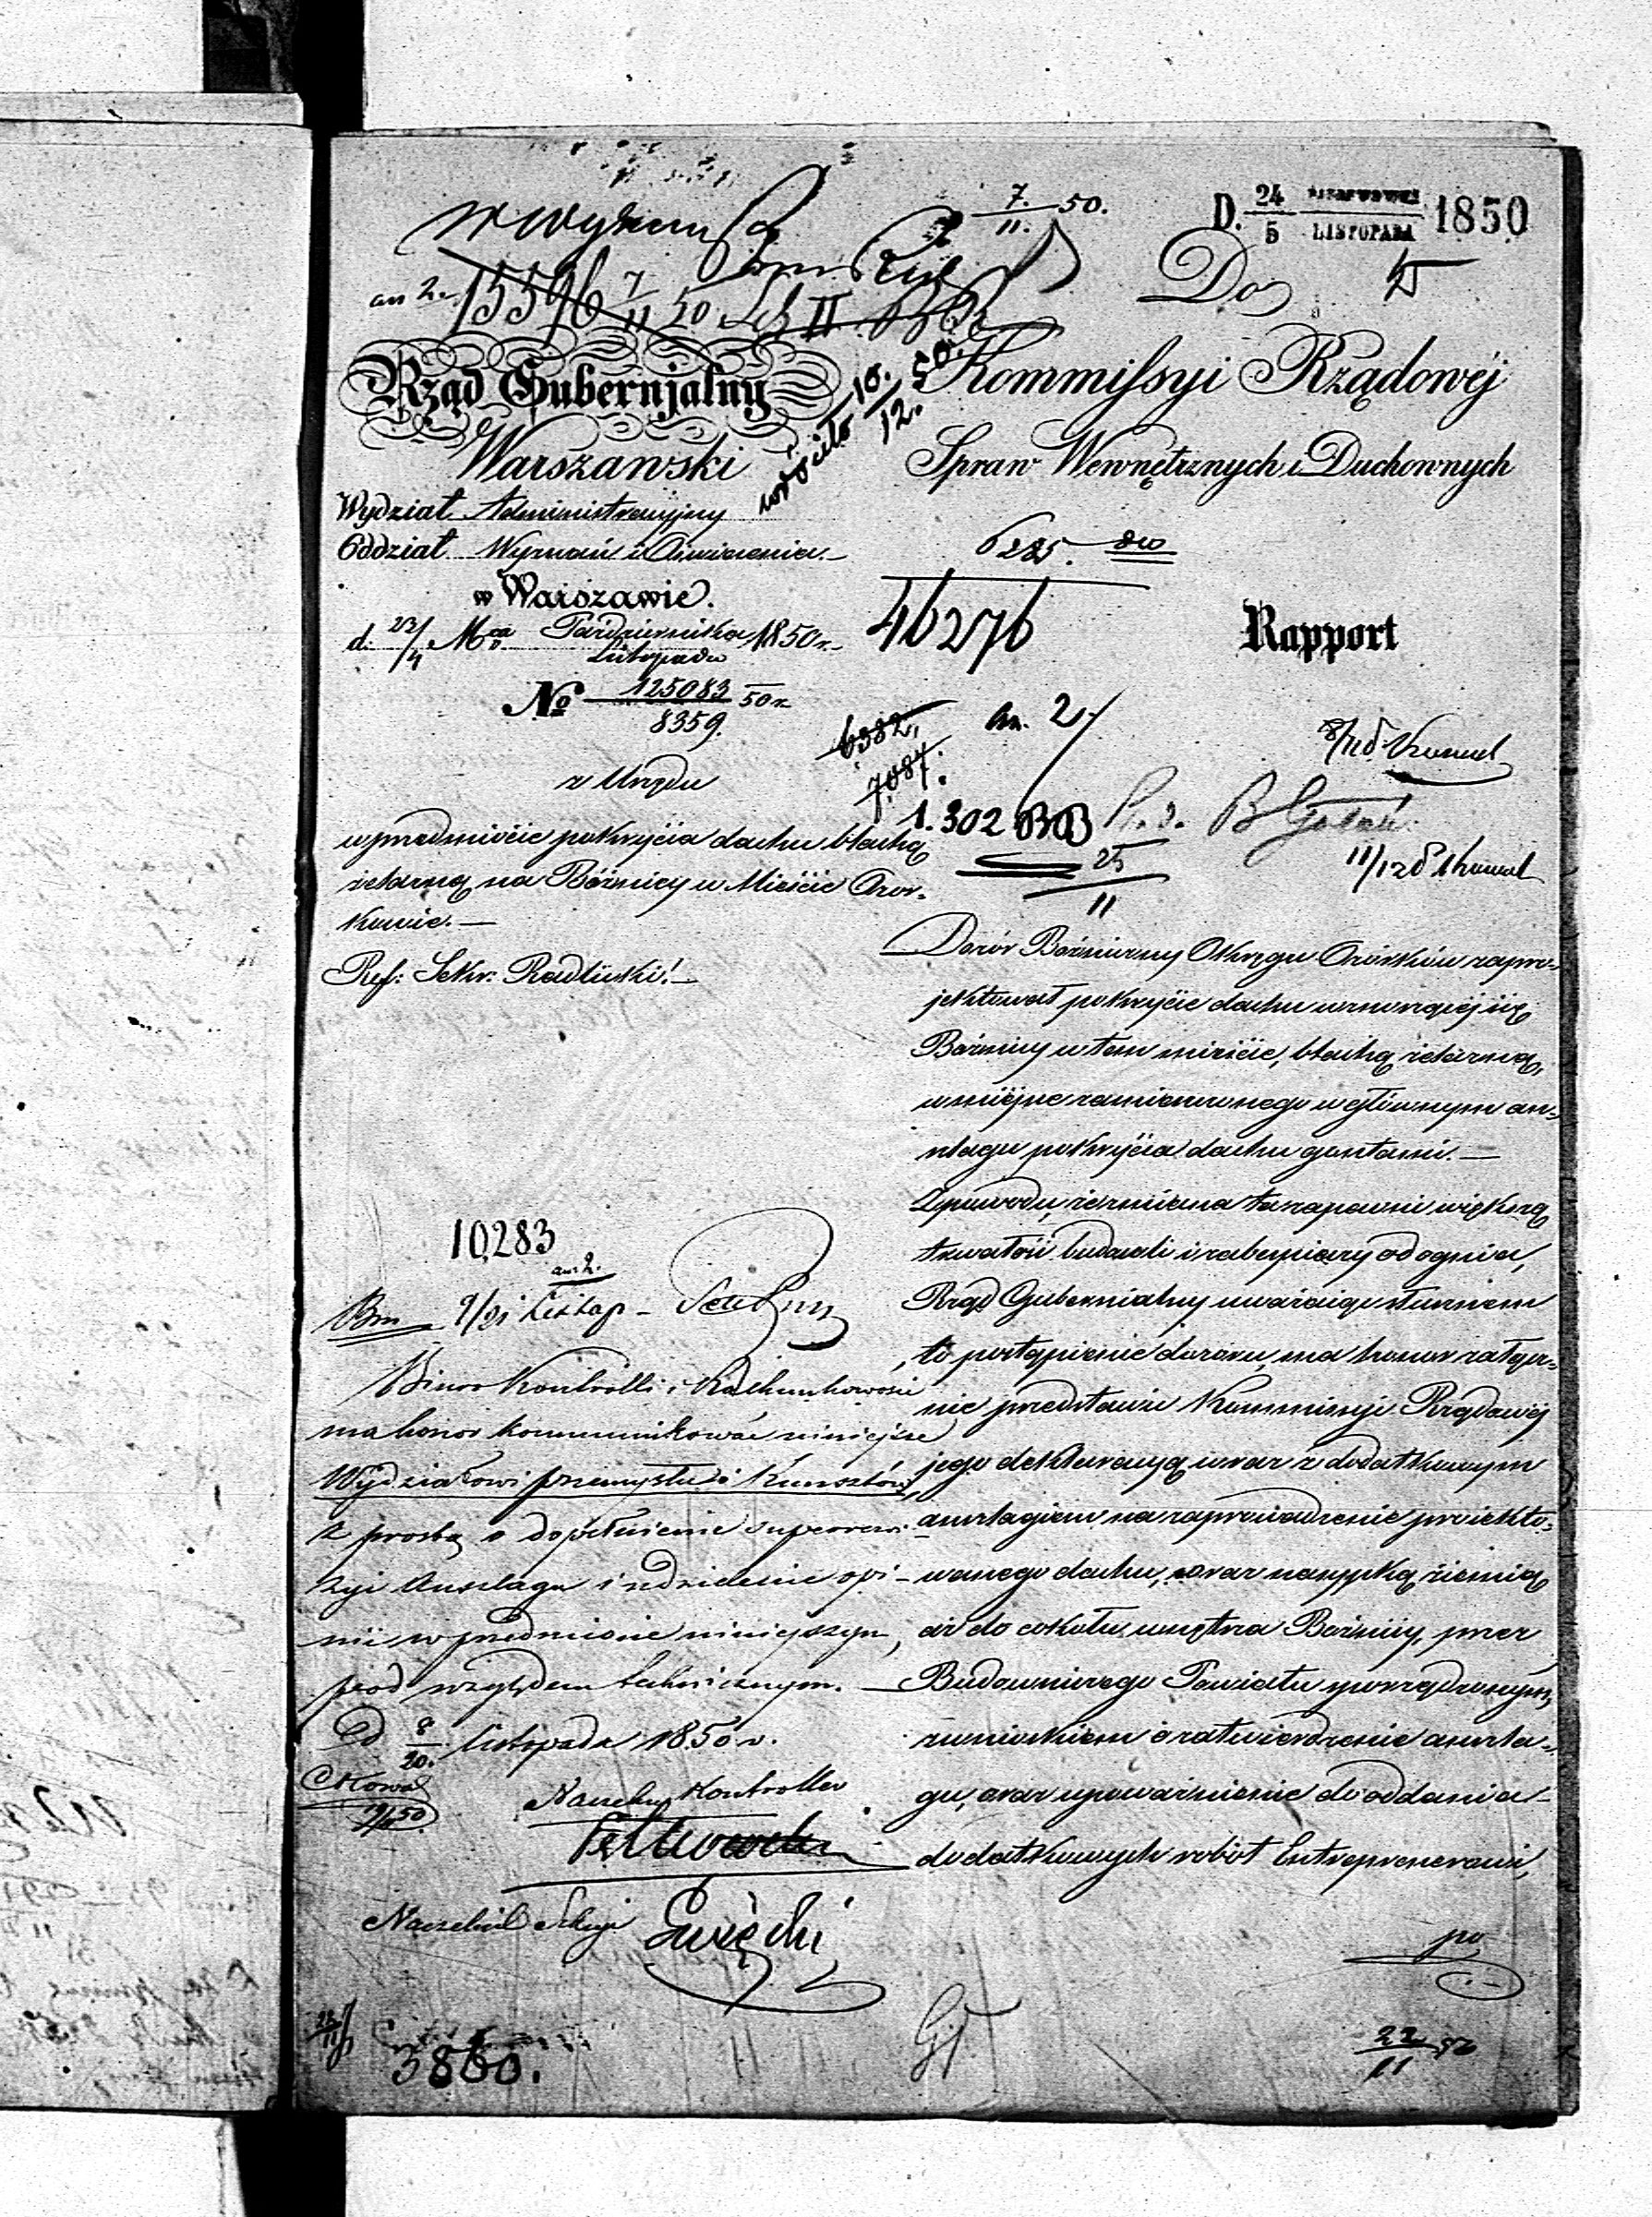 7./11. 50.
D. 24/5 PAZDZIERNIKA/LISTOPADA 1850
15596 7/11 50
Do
Rząd Gubernjalny
Warszawski
wróciło 10./12. 50.
Kommissyi Rządowéj
Spraw Wewnętrznych i Duchownych
Wydział Administracyjny
Oddział Wyznań i Oświecenia.
w Warszawie.
d. 23/4 Mca Października/Listopada 1850 r.
No 125083/8359. 50 r.
46276
Rapport
6382.
7087.
an. 2.
z Urzędu
w przedmiocie pokrycia dachu blachą
żelazną na Bóżnicy w Mieście Ozor-
kowie.
Ref: Sekr: Radliński.
1.302 BB
25/11
Dozór Bóżniczny Okręgu Ozorków zapro-
jektował pokrycie dachu wznoszącéj się
Bóżnicy w tem mieście, blachą żelazną,
w miejsce zamierzonego w głównym an-
szlagu pokrycia dachu gontami.
Z powodu, że zmiana ta zapewni większą
trwałość budowli i zabezpieczy od ognia,
Rząd Gubernialny uważając słusznem
to postąpienie dozoru, ma honor załącz-
nie przedstawić Kommissyi Rządowéj
jego deklaracyą wraz z dodatkowym
anszlagiem na zaprowadzenie projekto-
wanego dachu, oraz nasypką ziemią
aż do cokołu wnętrza Bóżnicy, przez
Budowniczego Powiatu sporządzonym,
z wnioskiem o zatwierdzenie anszla-
gu, oraz upoważnienie do oddania
dodatkowych robót Entreprenerowi,
po
10283
ann 2.
Biuro Kontrolli i Rachunkowości
ma honor kommunikować niniejsze
Wydziałowi Przemysłu i Kunsztów,
z prośbą o dopełnienie superrewi-
zyi Anszlagu i udzielenie opi-
nii w przedmiocie niniejszym,
pod względem technicznym.
d 8/20. Listopada 1850 r.
Naczelny Kontroller
Naczelnik Sekcyi
3860.
22/11 50